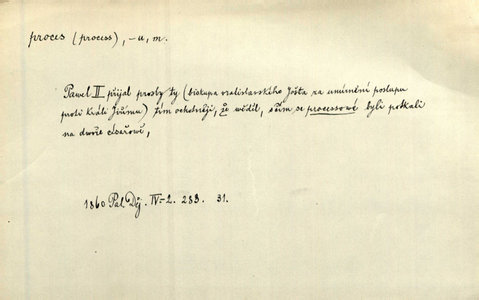 proces (process), -u, m.
Pavel II přijal prosby ty (biskupa vratislavského Jošta za umírnění postupu
proti králi Jiřímu) tím ochotněji, že věděl, s čím se processové byli potkali
na dvoře císařově,
1860 Pal. Děj. IV-2. 283. 31.